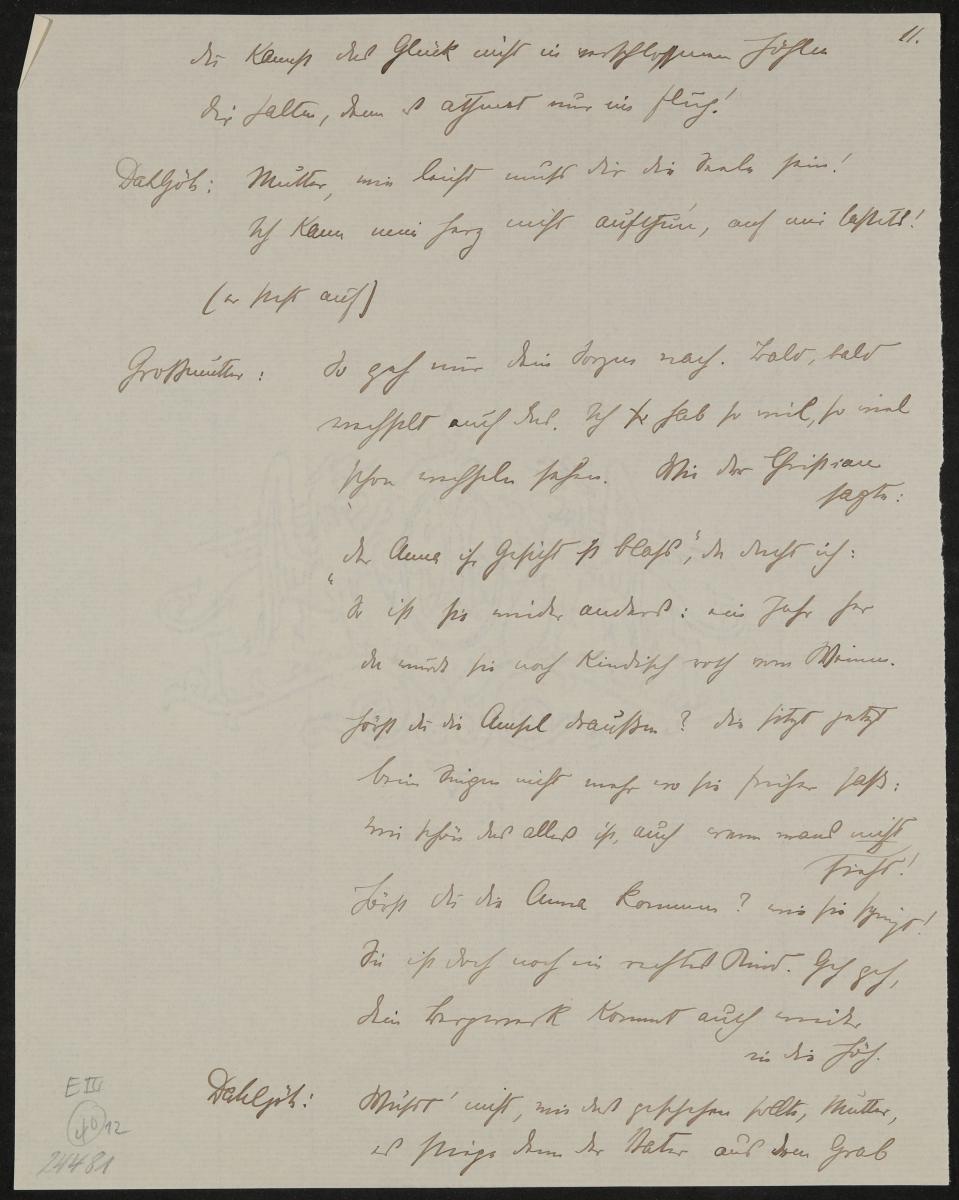 11.
du kannst das Glück nicht in verschlossenen Höhlen
dir halten, denn es athmet nur im Flug!
Dahlsjöh: Mutter, wie leicht muß dir die Seele sein!
Ich kann mein Herz nicht aufthun, auf mir lastets!
(er steht auf)
Großmutter: So geh nur dein Sorgen nach. Bald, bald
wechselt auch das. Ich hab so viel, so viel
schon wechseln sehen. Wie der Christian
sagte:
"der Anna ihr Gesicht ist blass", da dacht ich:
So ist sie wieder anders: ein Jahr her
da wurde sie noch kindisch roth vom Weinen.
Hörst du die Amsel draußen? die sitzt jetzt
beim Singen nicht mehr wo sie früher saß:
wie schön das alles ist, auch wenn mans nicht
sieht!
Hörst du die Anna kommen? wie sie springt!
Sie ist doch noch ein rechtes Kind. Geh geh,
dein Bergwerk kommt auch wieder
in die Höh.
Dahlsjöh: Wüßt' nicht, wie das geschehen sollte, Mutter,
es stiege denn der Vater aus dem Grab
E III
12
24481